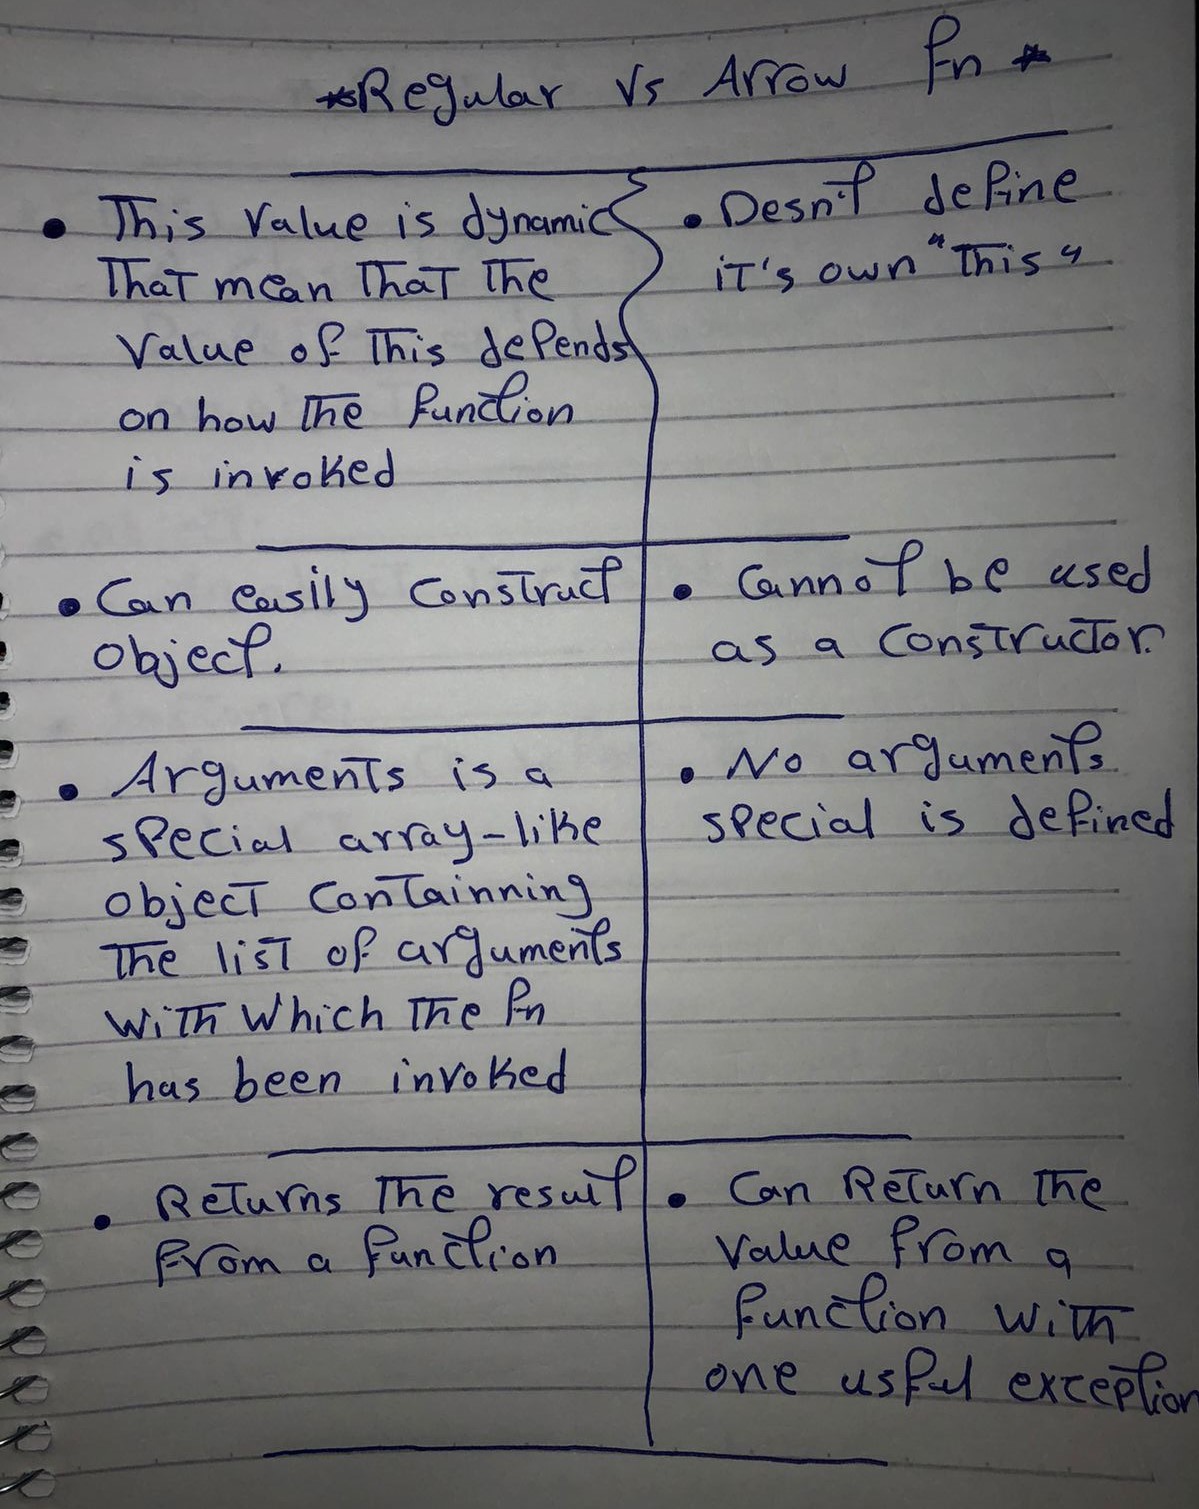 *Regular Vs Arrow fn *
• This Value is dynamic
That mean That The
Value of This depends
on how The function
is invoked
• Desn't define
iT's own "This"
• Can easily Construct
Object.
• Cannot be used
as a Constructor.
• Arguments is a
special array-like
object Containning
The list of arguments
With Which The fn
has been invoked
• No arguments
special is defined
• Returns The result
from a function
• Can Return The
Value from a
function with
one usful exception